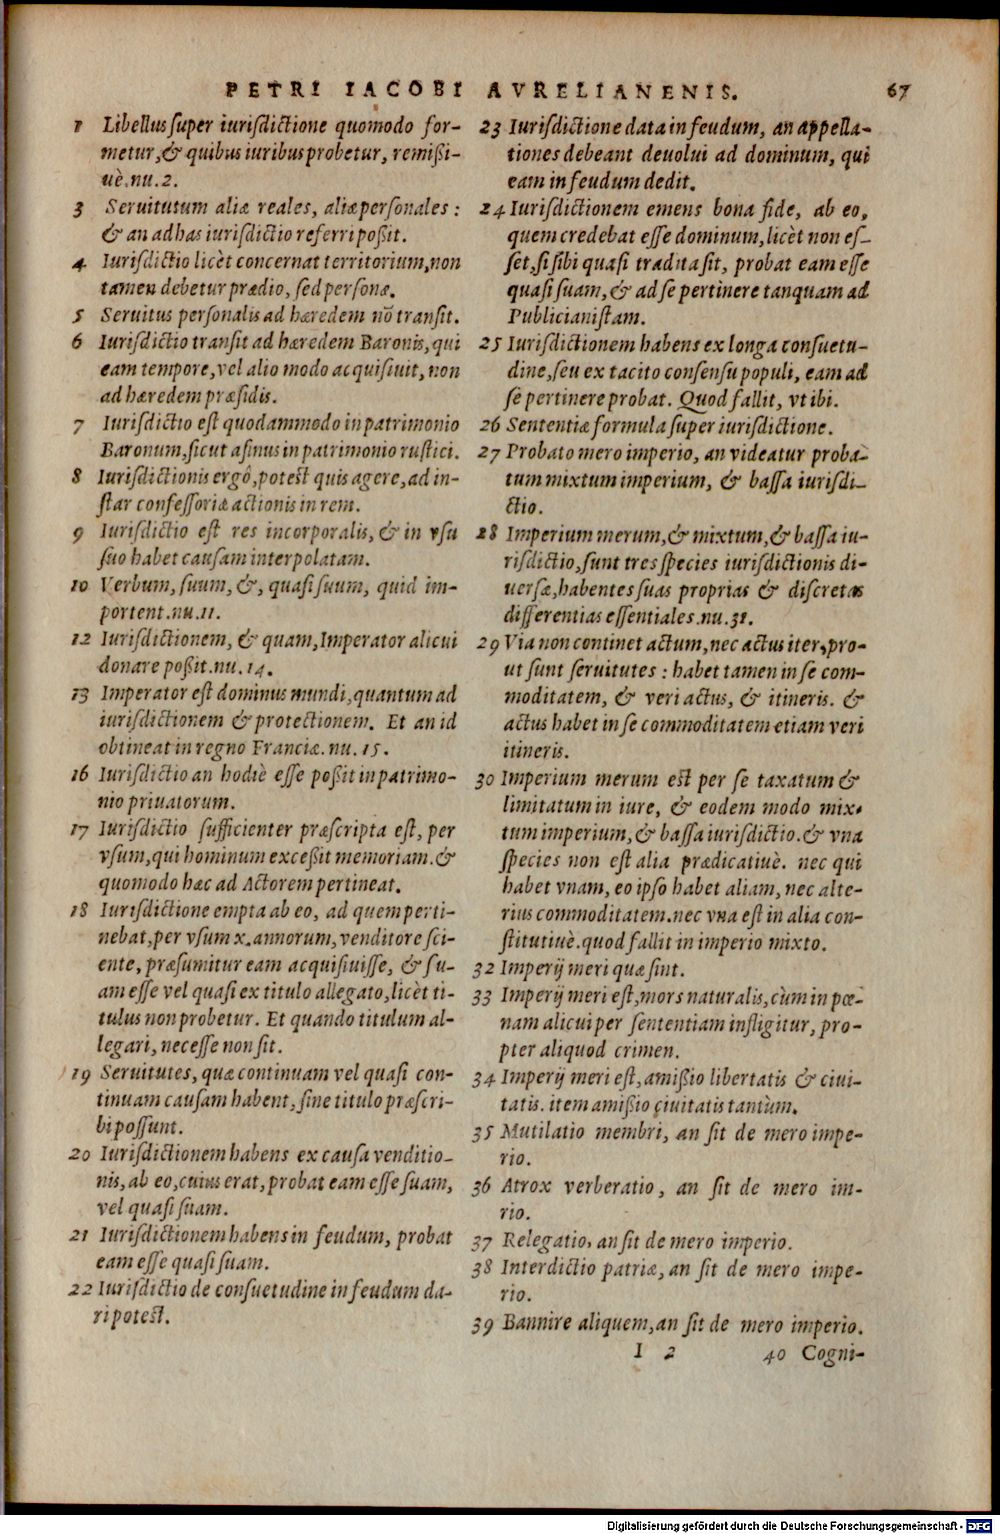 PETRI IACOBI AVRELIANENIS. 67
1 Libellus super iurisdictione quomodo for-
metur, & quibus iuribus probetur, remißi-
uè. nu. 2.
3 Seruitutum aliæ reales, aliæ personales:
& an ad has iurisdictio referri poßit.
4 Iurisdictio licèt concernat territorium, non
tamen debetur prædio, sed personæ.
5 Seruitus personalis ad hæredem nō transit.
6 Iurisdictio transit ad hæredem Baronis, qui
eam tempore, vel alio modo acquisiuit, non
ad hæredem præsidis.
7 Iurisdictio est quodammodo in patrimonio
Baronum, sicut asinus in patrimonio rustici.
8 Iurisdictionis ergô, potest quis agere, ad in-
star confessoriæ actionis in rem.
9 Iurisdictio est res incorporalis, & in vsu
suo habet causam interpolatam.
10 Verbum, suum, &, quasi suum, quid im-
portent. nu. 11.
12 Iurisdictionem, & quam, Imperator alicui
donare poßit. nu. 14.
13 Imperator est dominus mundi, quantum ad
iurisdictionem & protectionem. Et an id
obtineat in regno Franciæ. nu. 15.
16 Iurisdictio an hodiè esse poßit in patrimo-
nio priuatorum.
17 Iurisdictio sufficienter præscripta est, per
vsum, qui hominum exceßit memoriam. &
quomodo hæc ad Actorem pertineat.
18 Iurisdictione empta ab eo, ad quem perti-
nebat, per vsum x. annorum, venditore sci-
ente, præsumitur eam acquisiuisse, & su-
am esse vel quasi ex titulo allegato, licèt ti-
tulus non probetur. Et quando titulum al-
legari, necesse non sit.
19 Seruitutes, quæ continuam vel quasi con-
tinuam causam habent, sine titulo præscri-
bi possunt.
20 Iurisdictionem habens ex causa venditio-
nis, ab eo, cuius erat, probat eam esse suam,
vel quasi suam.
21 Iurisdictionem habens in feudum, probat
eam esse quasi suam.
22 Iurisdictio de consuetudine in feudum da-
ri potest.
23 Iurisdictione data in feudum, an appella-
tiones debeant deuolui ad dominum, qui
eam in feudum dedit.
24 Iurisdictionem emens bona fide, ab eo,
quem credebat esse dominum, licèt non es-
set, si sibi quasi tradita sit, probat eam esse
quasi suam, & ad se pertinere tanquam ad
Publicianistam.
25 Iurisdictionem habens ex longa consuetu-
dine, seu ex tacito consensu populi, eam ad
se pertinere probat. Quod fallit, vt ibi.
26 Sententiæ formula super iurisdictione.
27 Probato mero imperio, an videatur proba-
tum mixtum imperium, & bassa iurisdi-
ctio.
28 Imperium merum, & mixtum, & bassa iu-
risdictio, sunt tres species iurisdictionis di-
uersæ, habentes suas proprias & discretas
differentias essentiales. nu. 31.
29 Via non continet actum, nec actus iter, pro-
ut sunt seruitutes: habet tamen in se com-
moditatem, & veri actus, & itineris. &
actus habet in se commoditatem etiam veri
itineris.
30 Imperium merum est per se taxatum &
limitatum in iure, & eodem modo mix-
tum imperium, & bassa iurisdictio. & vna
species non est alia prædicatiuè. nec qui
habet vnam, eo ipso habet aliam, nec alte-
rius commoditatem. nec vna est in alia con-
stitutiuè. quod fallit in imperio mixto.
32 Imperij meri quæ sint.
33 Imperij meri est, mors naturalis, cùm in pœ-
nam alicui per sententiam infligitur, pro-
pter aliquod crimen.
34 Imperij meri est, amißio libertatis & ciui-
tatis. item amißio ciuitatis tantùm.
35 Mutilatio membri, an sit de mero impe-
rio.
36 Atrox verberatio, an sit de mero im-
rio.
37 Relegatio, an sit de mero imperio.
38 Interdictio patriæ, an sit de mero impe-
rio.
39 Bannire aliquem, an sit de mero imperio.
I 2 40 Cogni-
Digitalisierung gefördert durch die Deutsche Forschungsgemeinschaft - DFG